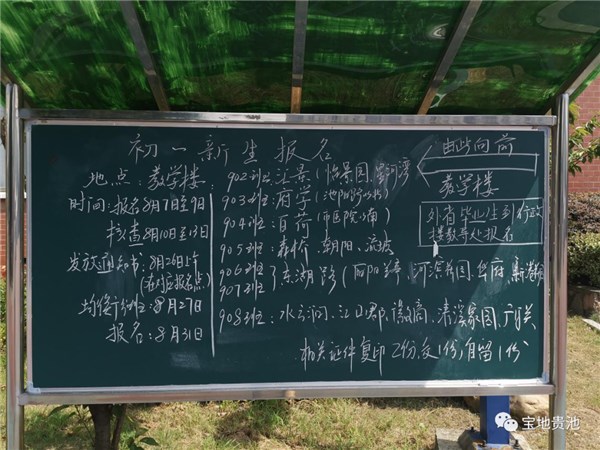 初一新生报名
地点:教学楼
时间:报名8月7日至9日
核查8月10日至13日
发放通知书:8月26日上午
(在对应报名点)
均衡分班:8月27日
报名:8月31日
902班:江景(怡景园、
903班:府学(池阳
904班:百荷(市医院
905班:森怡、朝阳、
906班
907班:东湖路(
908班:水云涧、江山郡、清溪
相关证件复印2份,交1份,自留1份
由此向前
教学楼
外省毕业生到行政
楼教导处报名
宝地贵池